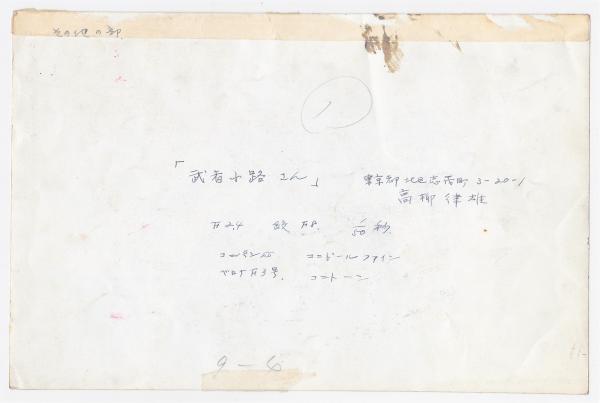 その他の部
「武者小路さん」
東京都北区志茂町 3-20-1
高柳律雄
F2.4 絞 F8. 1/50秒.
コンタックス コニドールファイン
ベロナF3号. コニトーン
9-6